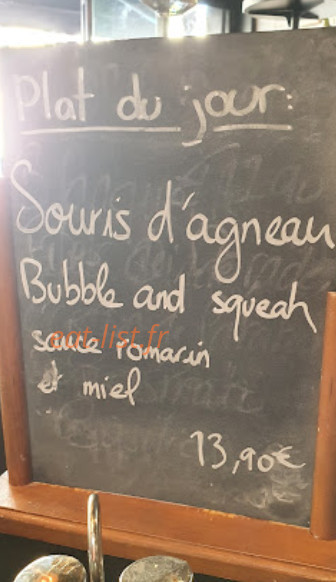 Plat du jour:
Souris d'agneau
Bubble and squeah
sauce romarin
et miel
13,90€
eat-list.fr